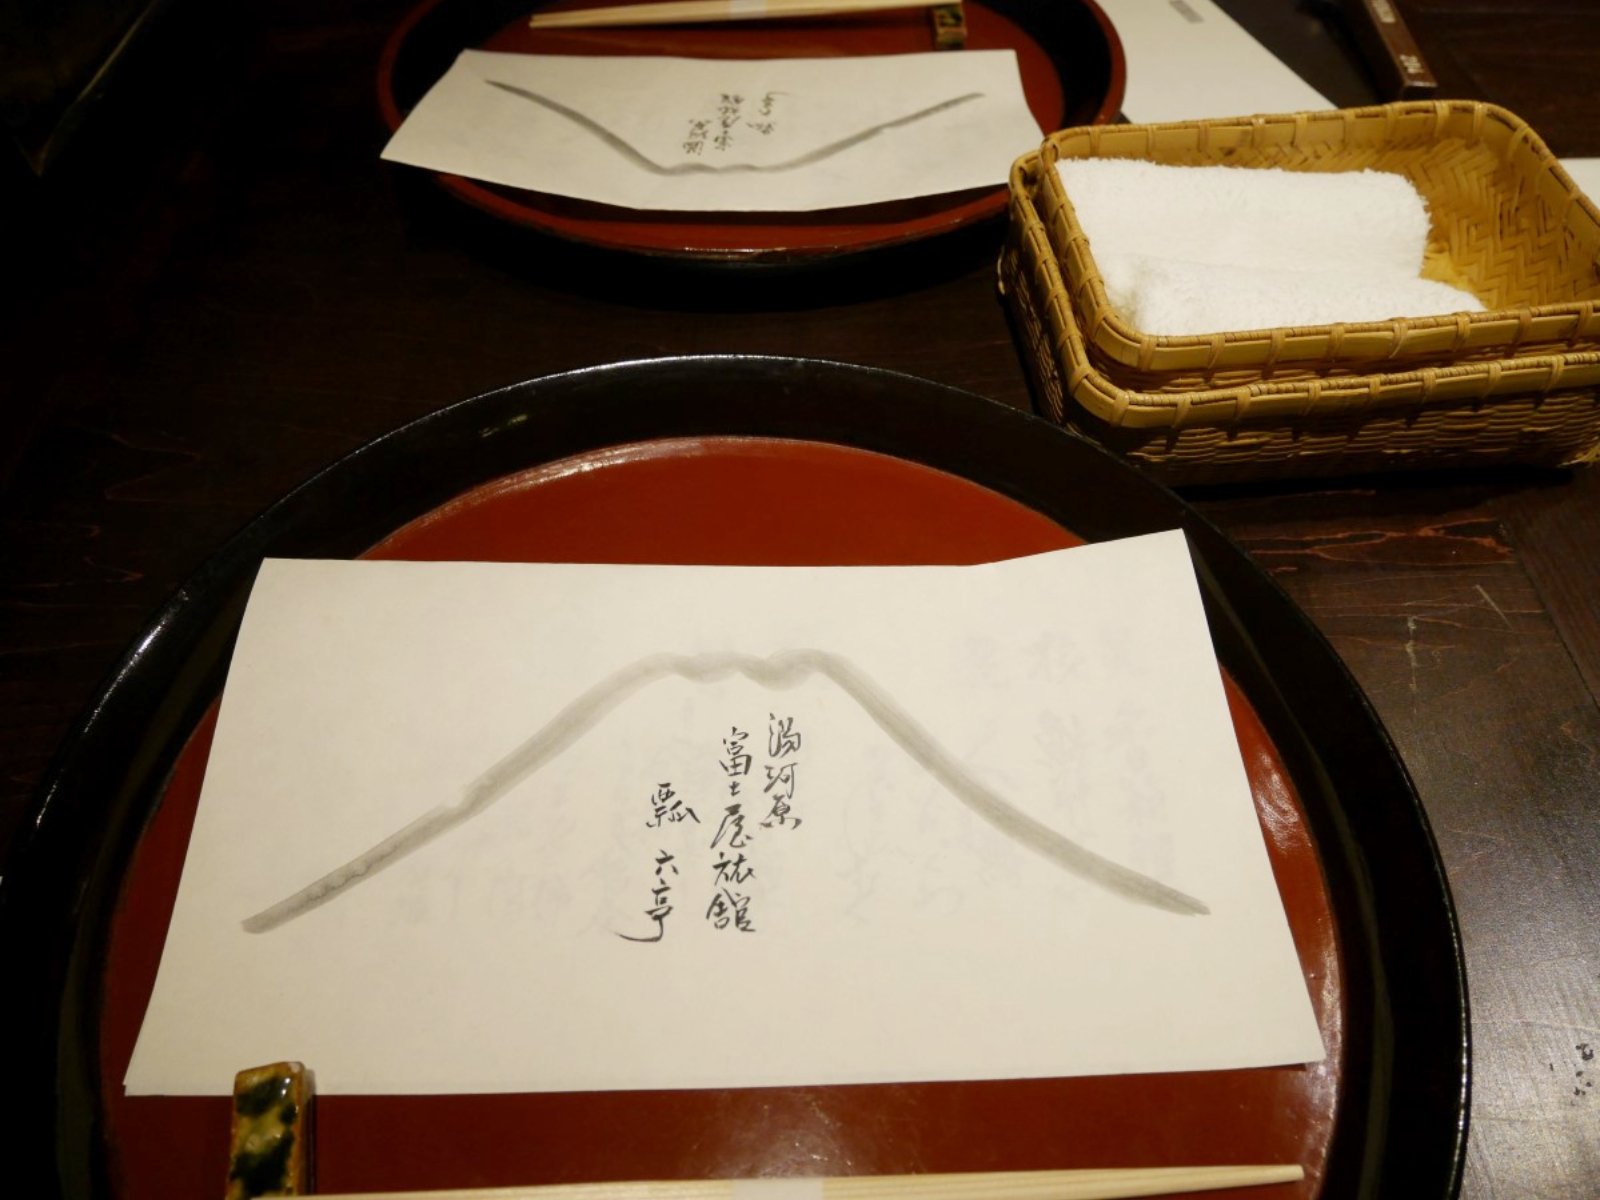 湯河原
富士屋旅館
瓢六亭